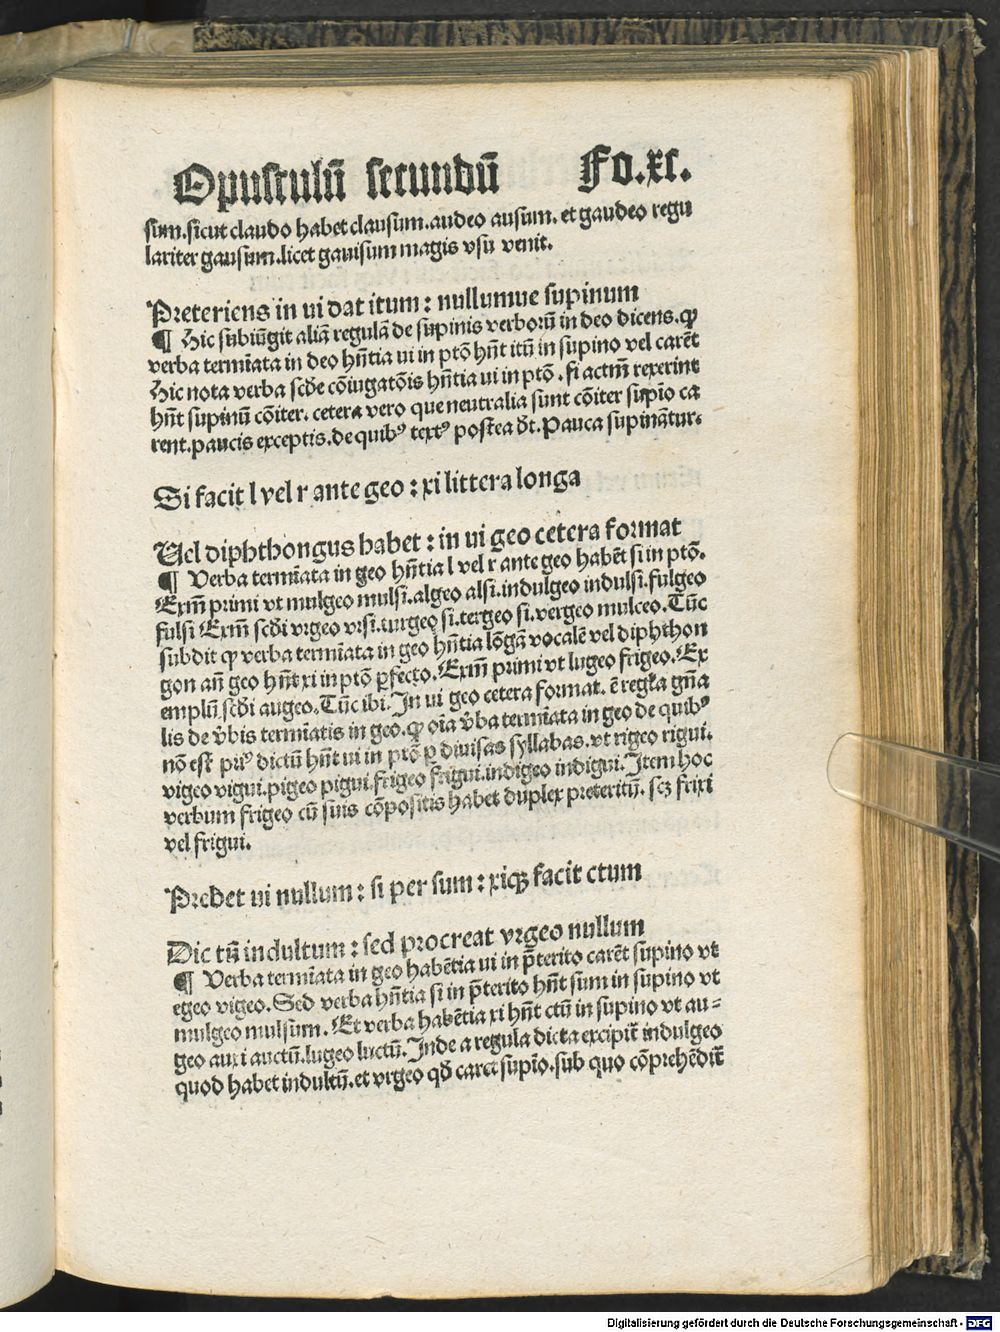 Opusculū secundū Fo.xc.
sum.sicut claudo habet clausum.audeo ausum. et gaudeo regu
lariter gausum.licet gauisum magis vsu venit.
Preteriens in ui dat itum : nullumue supinum
¶ Hic subiūgit aliā regulā de supinis verborū in deo dicens.ꝙ
verba termīata in deo hn̄tia ui in ptō hn̄t itū in supino vel carēt
Hic nota verba scd̄e cōiugatōis hn̄tia ui in ptō . si actm̄ rexerint
hn̄t supinū cōiter. cetera vero que neutralia sunt cōiter supīo ca
rent.paucis exceptis.de quibꝰ textꝰ postea d̄t.Pauca supinātur.
Si facit l vel r ante geo : xi littera longa
Uel diphthongus habet : in ui geo cetera format
¶ Verba termīata in geo hn̄tia l vel r ante geo habēt si in ptō.
Exm̄ primi vt mulgeo mulsi.algeo alsi.indulgeo indulsi.fulgeo
fulsi Exm̄ scd̄i vrgeo vrsi.turgeo si.tergeo si.vergeo mulceo.Tūc
subdit ꝙ verba termīata in geo hn̄tia lōgā vocalē vel diphthon
gon an̄ geo hn̄t xi in ptō ꝑfecto.Exm̄ primi vt lugeo frigeo.Ex
emplū scd̄i augeo.Tūc ibi.In ui geo cetera format. ē regl̄a gn̄a
lis de v̄bis termīatis in geo.ꝙ oīa v̄ba termīata in geo de quibꝰ
nō est priꝰ dictū hn̄t ui in ptō ꝑ diuisas syllabas.vt rigeo rigui.
vigeo vigui.pigeo pigui.frigeo frigui.indigeo indigui.Item hoc
verbum frigeo cū suis cōpositis habet duplex preteritū. scꝫ frixi
vel frigui.
Prebet ui nullum : si per sum : xiqꝫ facit ctum
Dic tn̄ indultum : sed procreat vrgeo nullum
¶ Verba termīata in geo habētia ui in p̄terito carēt supino vt
egeo vigeo. Sed verba hn̄tia si in p̄terito hn̄t sum in supino vt
mulgeo mulsum. Et verba habētia xi hn̄t ctū in supino vt au=
geo auxi auctū.lugeo luctū. Inde a regula dicta excipit̄ indulgeo
quod habet indultū.et vrgeo qd̄ caret supīo.sub quo cōprehēdit̄
Digitalisierung gefördert durch die Deutsche Forschungsgemeinschaft - DFG